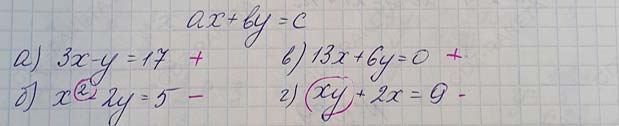 ax+by=c
а) 3x-y=17 + в) 13x+6y=0 +
б) x²-2y=5 - г) xy+2x=9 -